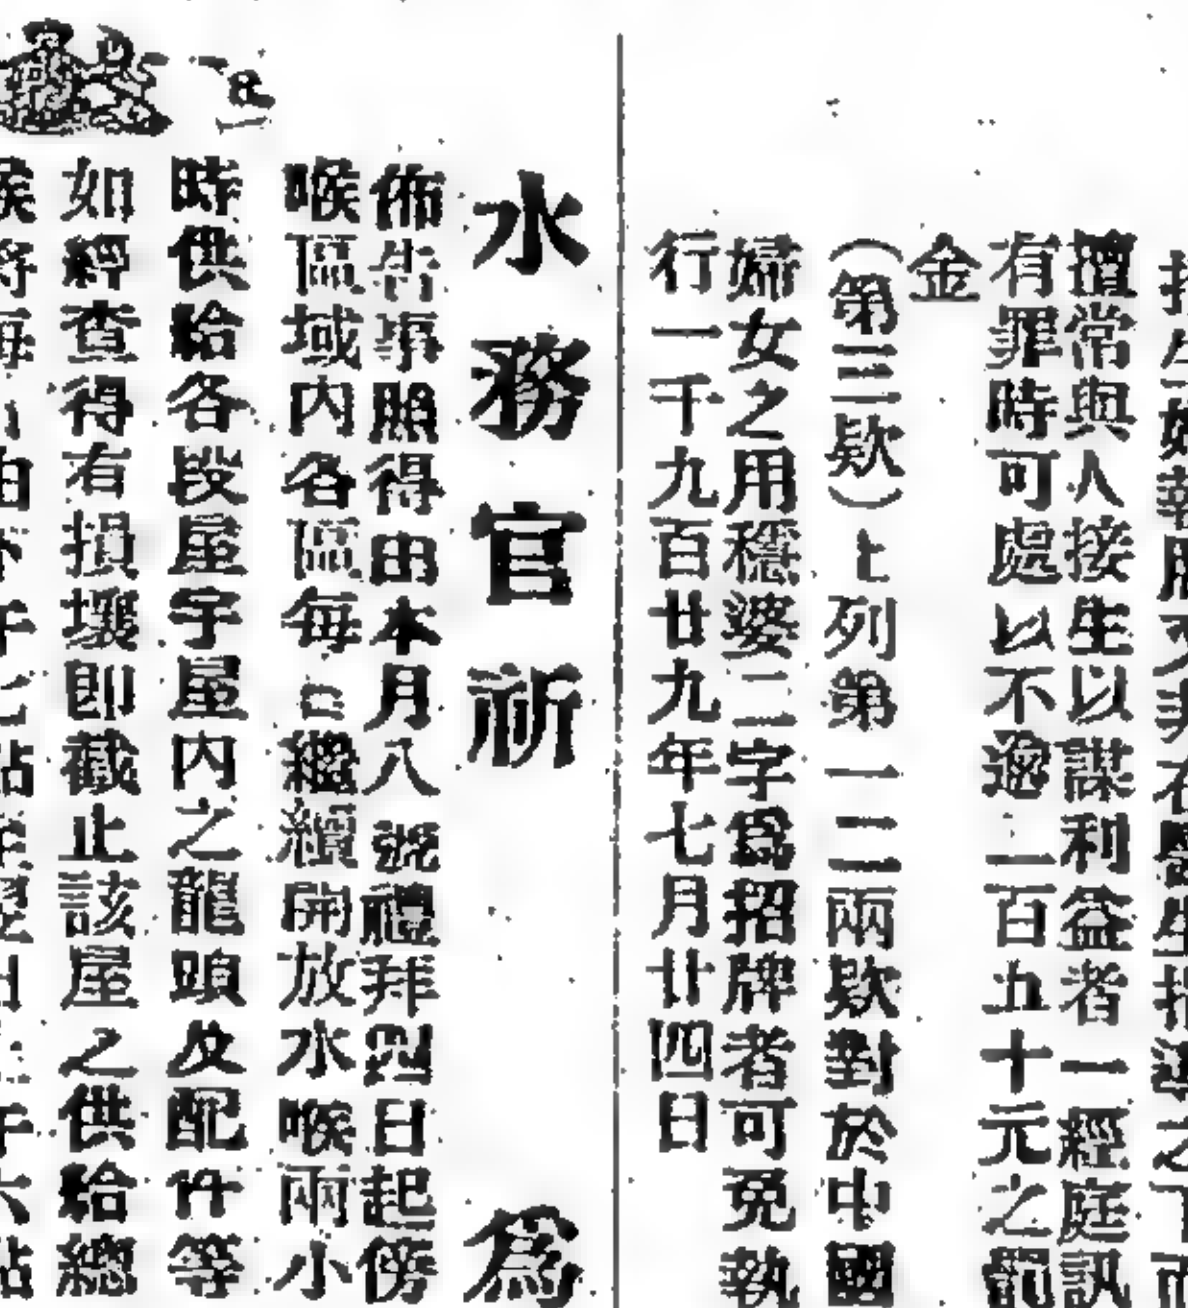 擅常與人接生以謀利益者一經庭訊
有罪時可處以不逾一百五十元之罰
金
（第三欵）上列第一二兩欵對於中國
婦女之用穩婆二字爲招牌者可免執
行一千九百廿九年七月廿四日
水務官祈　爲
佈告事照得由本月八號禮拜四日起傍
喉區域內各區每日繼續開放水喉兩小
時供給各段屋宇屋內之龍頭及配件等
如經查得有損壞即截止該屋之供給總